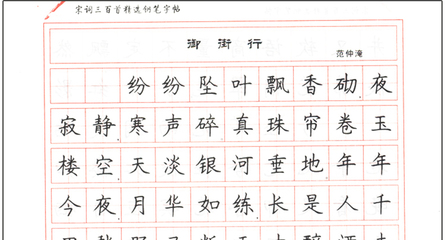 宋词三百首精选钢笔字帖
御街行
范仲淹
纷纷坠叶飘香砌夜
寂静寒声碎真珠帘卷玉
楼空天淡银河垂地年年
今夜月华如练长是人千